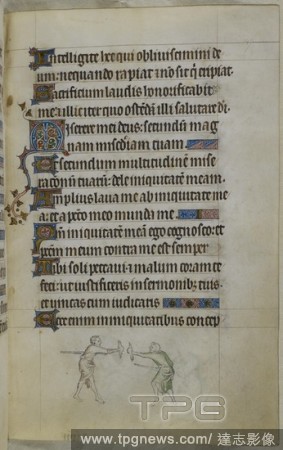 Intelligite hec qui obliuiscimini de
um: nequando rapiat ⁊ nō sit q̄ eripiat.
Sacrificium laudis honorificabit
me: ⁊ illic iter quo ostēdā illi salutare di.
Miserere mei deus: secundum mag
nam misediam tuam.
Et secundum multitudinem mise
rationū tuarū: dele iniquitatē meam.
Amplius laua me ab iniquitate me
a: et a pctō meo munda me.
Qm iniquitatem meā ego cognosco: et
pctm meum contra me est semper
Tibi soli peccaui ⁊ malum coram te
feci: ut iustificeris in sermonibꝫ tuis:
et uincas cum iudicaris
Ecce enim in iniquitatibus concep
TPG
www.tpgnews.com/ 達志影像